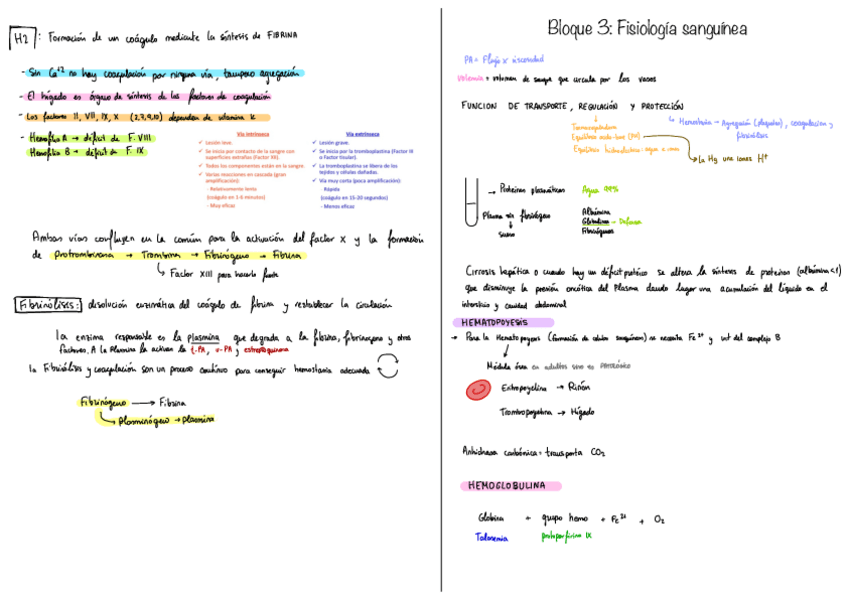 H2 : Formación de un coágulo mediante la síntesis de FIBRINA
- Sin Ca+2 no hay coagulación por ninguna vía, tampoco agregación
- El hígado es órgano de síntesis de los factores de coagulación
- Los factores II, VII, IX, X (2,7,9,10) dependen de vitamina K
- Hemofilia A → déficit de F. VIII
Hemofilia B → déficit de F. IX
Vía intrínseca
✓ Lesión leve.
✓ Se inicia por contacto de la sangre con
superficies extrañas (Factor XII).
✓ Todos los componentes están en la sangre.
✓ Varias reacciones en cascada (gran
amplificación):
- Relativamente lento
(coágulo en 1-6 minutos)
- Muy eficaz
Vía extrínseca
✓ Lesión grave.
✓ Se inicia por tromboplastina (Factor III
o Factor tisular).
✓ La tromboplastina se libera de los
tejidos y células dañadas.
✓ Vía muy corta (poca amplificación):
- Rápida
(coágulo en 15-20 segundos)
- Menos eficaz
Ambas vías confluyen en la común para la activación del factor X y la formación
de Protrombinasa → Trombina → Fibrinógeno → Fibrina
↳ Factor XIII para hacerlo fuerte
Fibrinólisis: disolución enzimática del coágulo de fibrina y restablecer la circulación
La enzima responsable es la plasmina que degrada a la fibrina, fibrinógeno y otros
factores. A la Plasmina la activan la t-PA, u-PA y estreptoquinasa
la Fibrinólisis y coagulación son un proceso continuo para conseguir hemostasia adecuada
Fibrinógeno → Fibrina
↳ Plasminógeno → plasmina
Bloque 3: Fisiología sanguínea
PA = Flujo x viscosidad
Volemia = volumen de sangre que circula por los vasos
FUNCION DE TRANSPORTE, REGULACIÓN Y PROTECCIÓN
↳ Hemostasia → Agregación (plaquetas), coagulación y
fibrinólisis
Termorreguladora
Equilibrio ácido-base
Equilibrio hidroelectrolítico
La Hg une iones H+
→ Proteínas plasmáticas
Agua 91%
Plasma sin fibrinógeno
↓
Suero
Albúmina
Globulina → Defensa
Fibrinógeno
Cirrosis hepática o cuando hay un déficit proteico se altera la síntesis de proteínas (albúmina <1)
que disminuye la presión oncótica del Plasma dando lugar una acumulación del líquido en el
intersticio y cavidad abdominal
HEMATOPOYESIS
→ Para la Hematopoyesis (formación de células sanguíneas) se necesita Fe 2+ y vit del complejo B
Médula ósea en adultos
Eritropoyetina → Riñón
Trombopoyetina → Hígado
Anhidrasa carbónica = transporta CO2
HEMOGLOBULINA
Globina + grupo hemo + Fe 2+ + O2
Talasemia
protoporfirina IX